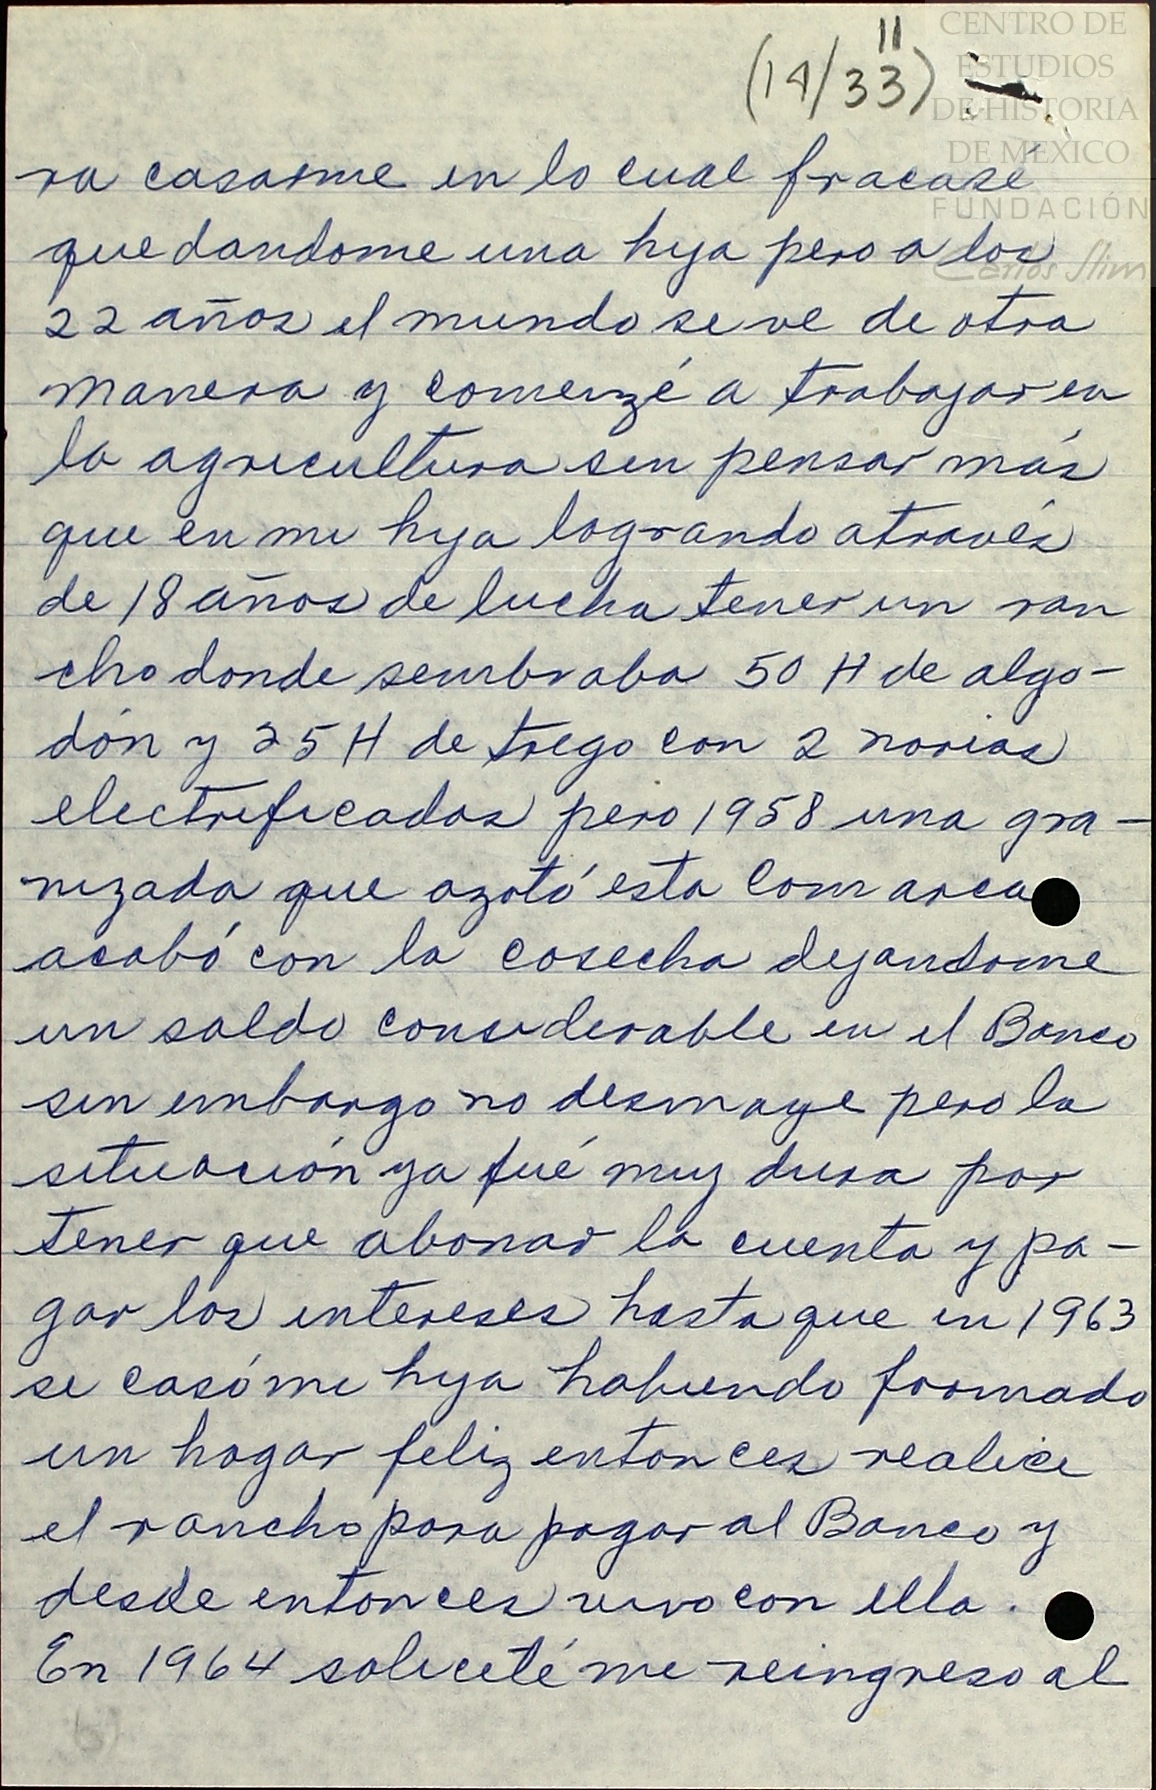 (14/33) 11
CENTRO DE
ESTUDIOS
DE HISTORIA
DE MÉXICO
FUNDACIÓN
Carlos Slim
ra casarme en lo cual fracasé
quedandome una hija pero a los
22 años el mundo se ve de otra
manera y comenzé a trabajar en
la agricultura sin pensar más
que en mi hija logrando através
de 18 años de lucha tener un ran
cho donde sembraba 50 H de algo-
dón y 25 H de trigo con 2 norias
electrificadas pero 1958 una gra-
nizada que azotó esta Comarca
acabó con la cosecha dejandome
un saldo considerable en el Banco
sin embargo no desmaye pero la
situación ya fué muy dura por
tener que abonar la cuenta y pa-
gar los intereses hasta que en 1963
se casó mi hija habiendo formado
un hogar feliz entonces realice
el rancho para pagar al Banco y
desde entonces vivo con ella.
En 1964 solicité mi reingreso al